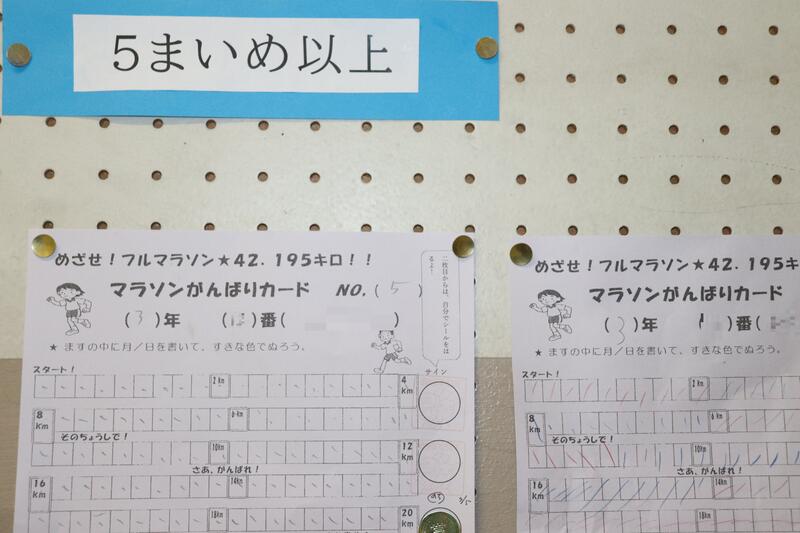 5まいめ以上
めざせ！フルマラソン★42.195キロ！！
マラソンがんばりカード NO.(5)
(3)年 ( )番( )
★ ますの中に月／日を書いて、すきな色でぬろう。
二枚目からは、自分でシールをはるよ！
サイン
スタート！
2km
4km
8km
6km
そのちょうしで！
10km
12km
さあ、がんばれ！
16km
14km
18km
20km
めざせ！フルマラソン★42.195キ
マラソンがんばりカード
(3)年 ( )番(
★ ますの中に月／日を書いて、すきな色でぬろう。
スタート！
2km
8km
6km
そのちょうしで！
10km
さあ、がんばれ！
16km
14km
18km